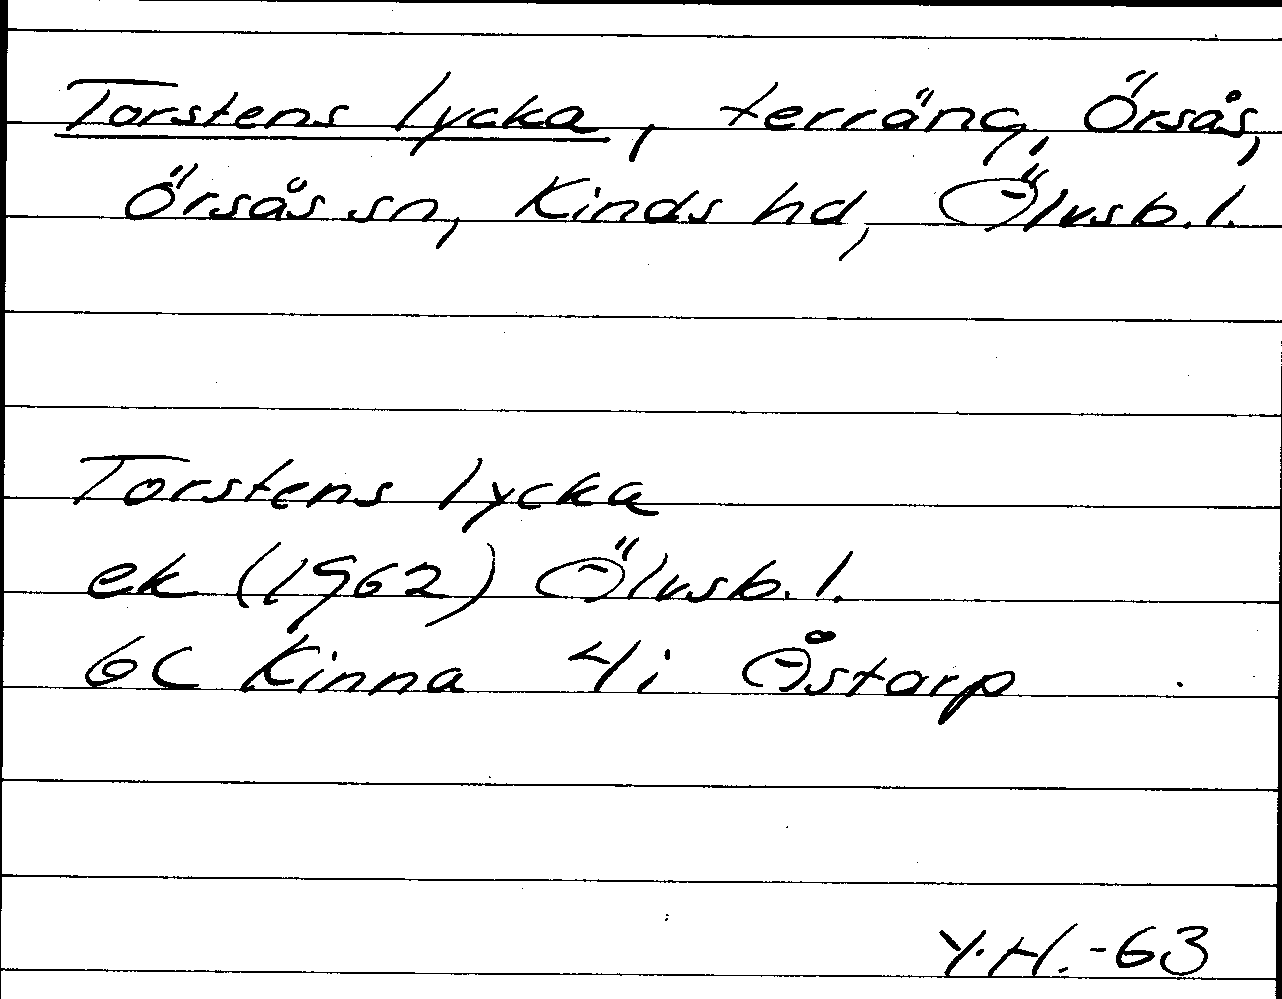 Torstens lycka, terräng, Örsås,
Örsås sn, Kinds hd, Älvsb. l.
Torstens lycka
ek (1962) Älvsb. l.
6C Kinna 4i Åstarp
Y.H. -63